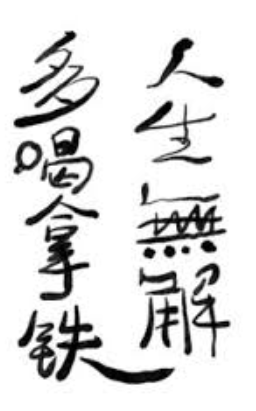 人生無解
多喝拿铁